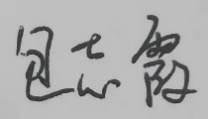 包志霞